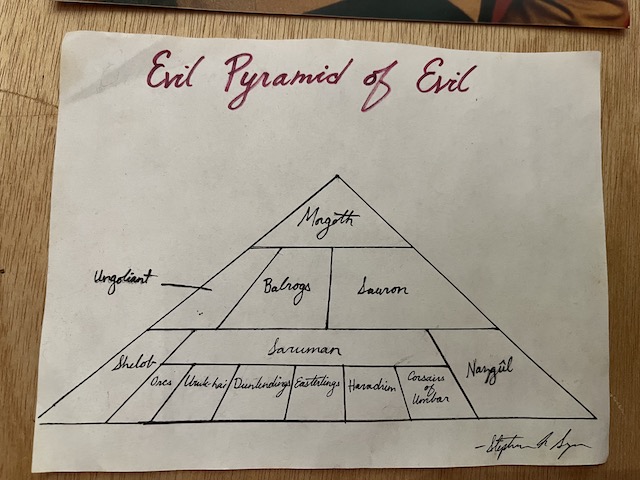 Evil Pyramid of Evil
Morgoth
Ungoliant
Balrogs
Sauron
Shelob
Saruman
Nazgûl
Orcs
Uruk-hai
Dunlendings
Easterlings
Haradrim
Corsairs
of
Umbar